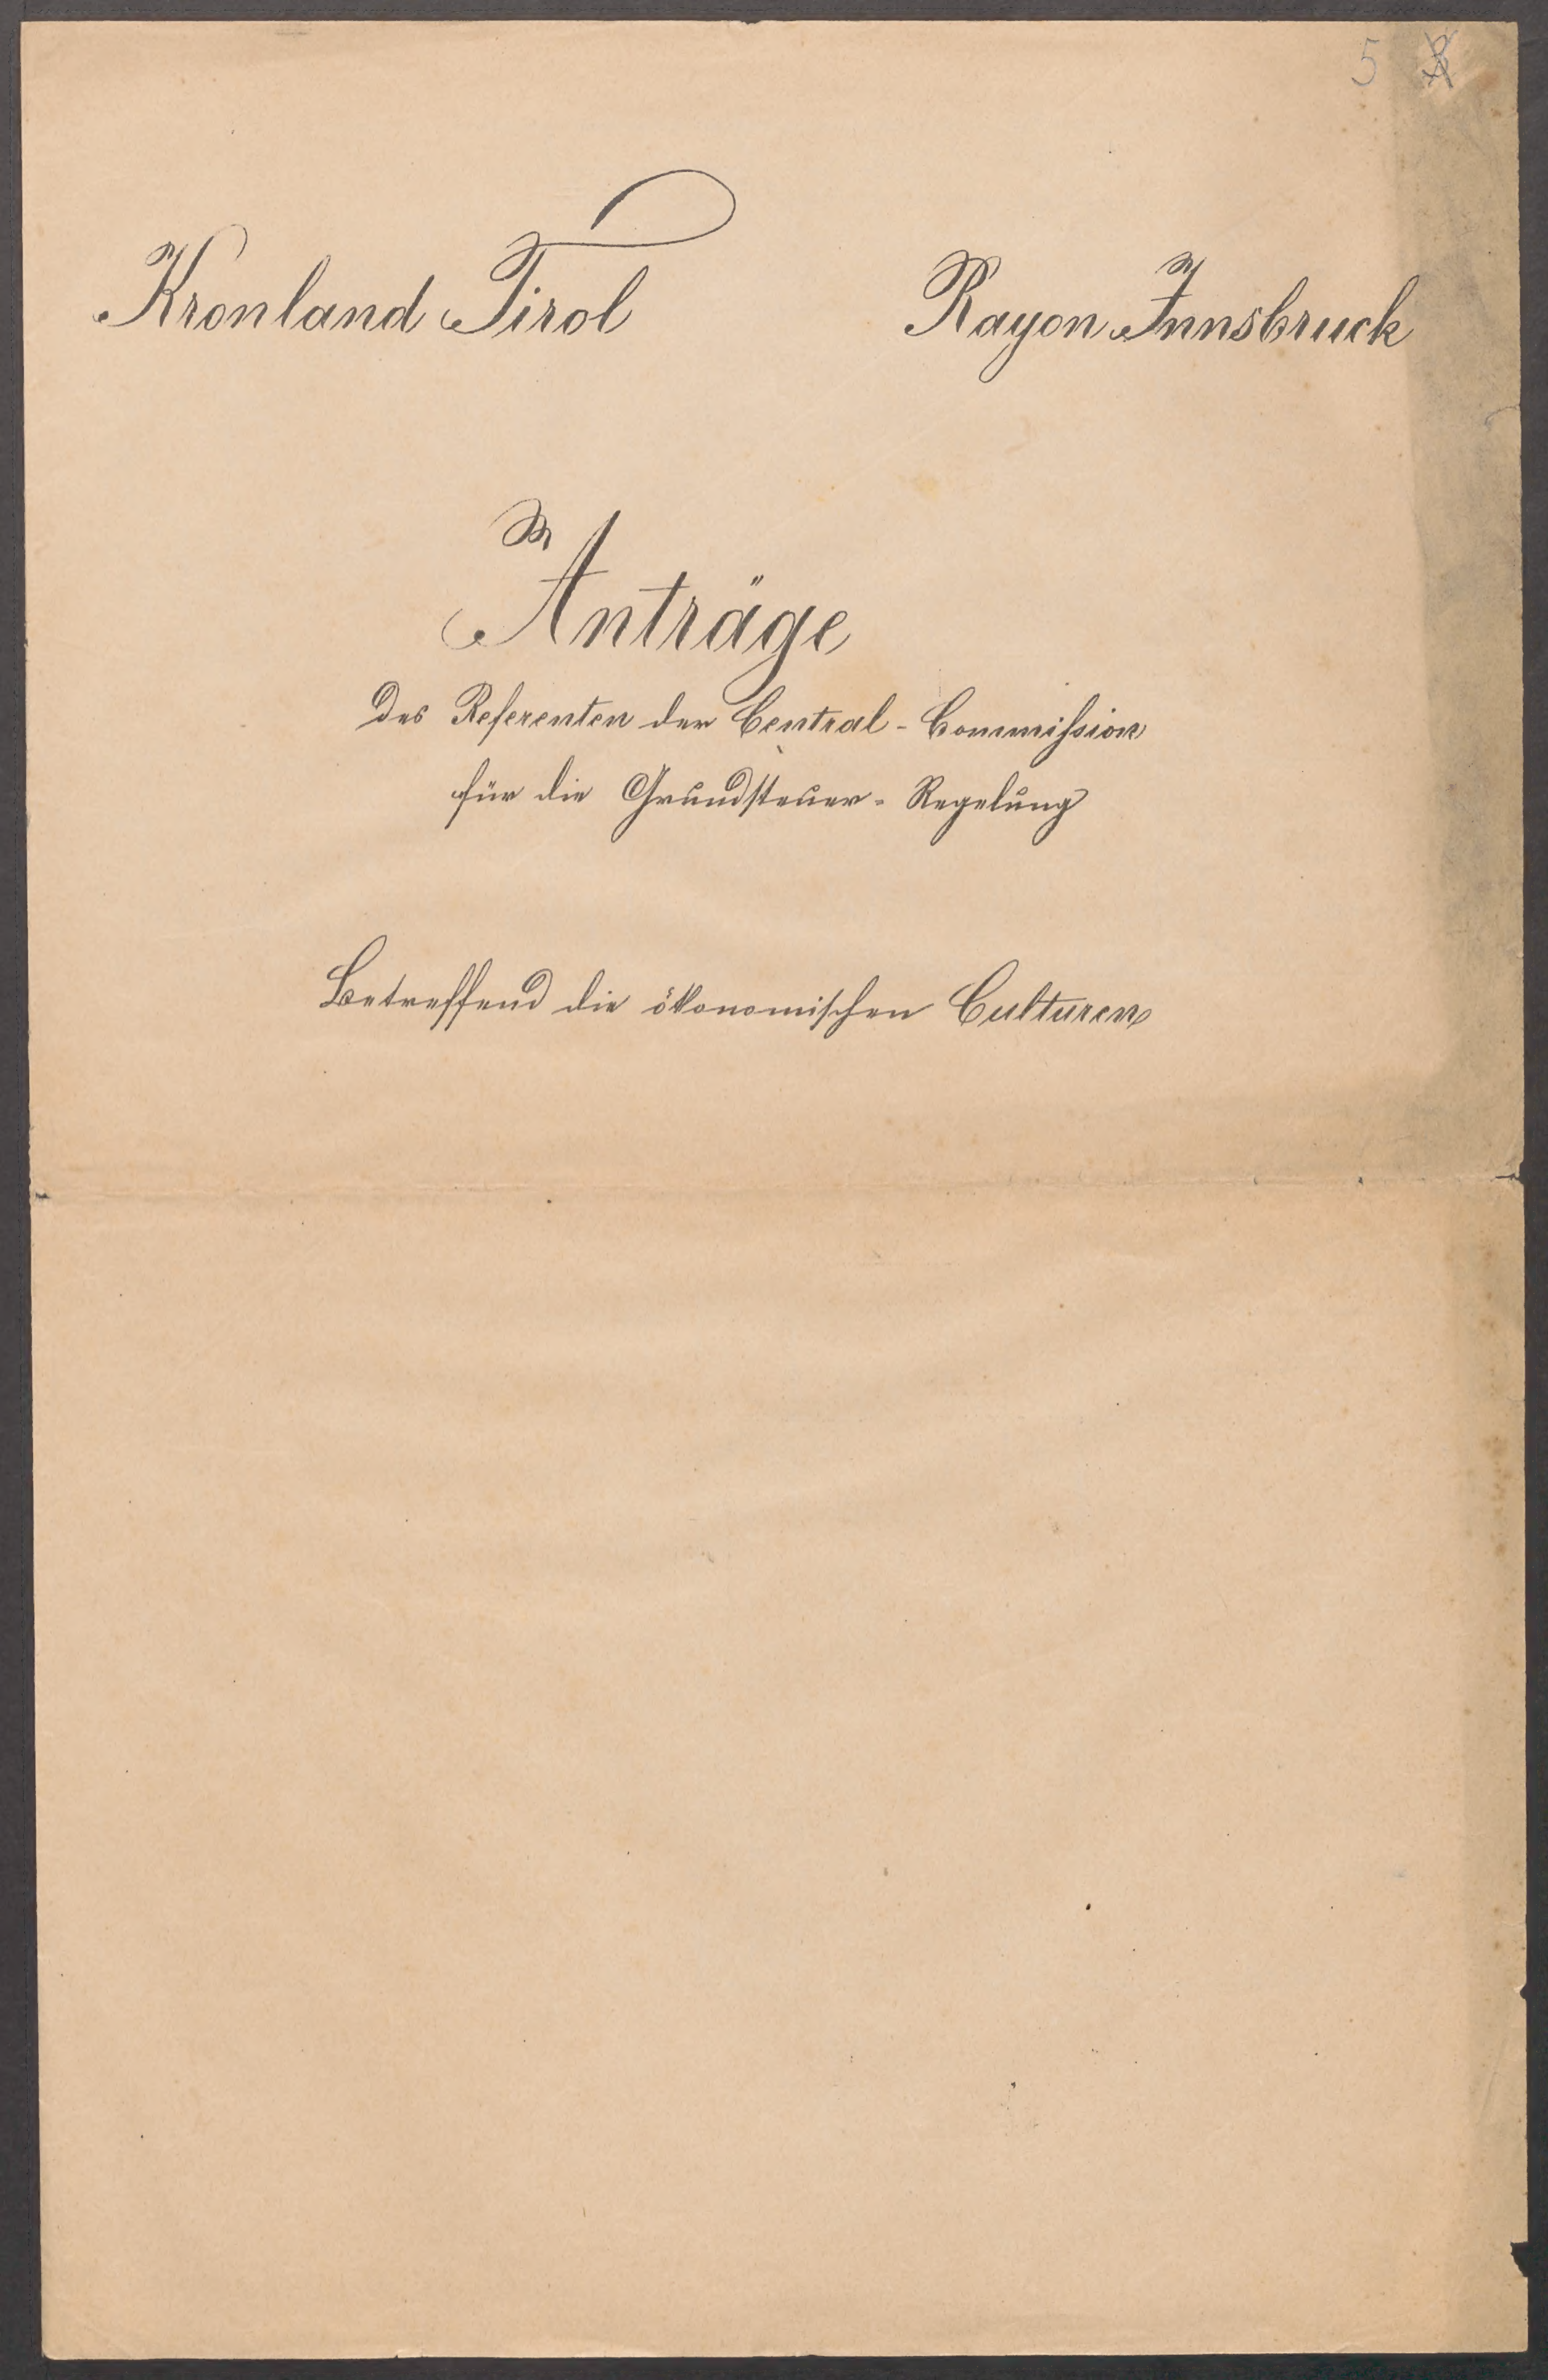 5
Kronland Tirol Rayon Innsbruck
Anträge
des Referenten der Central-Commission
für die Grundsteuer-Regelung
Betreffend die ökonomischen Culturen